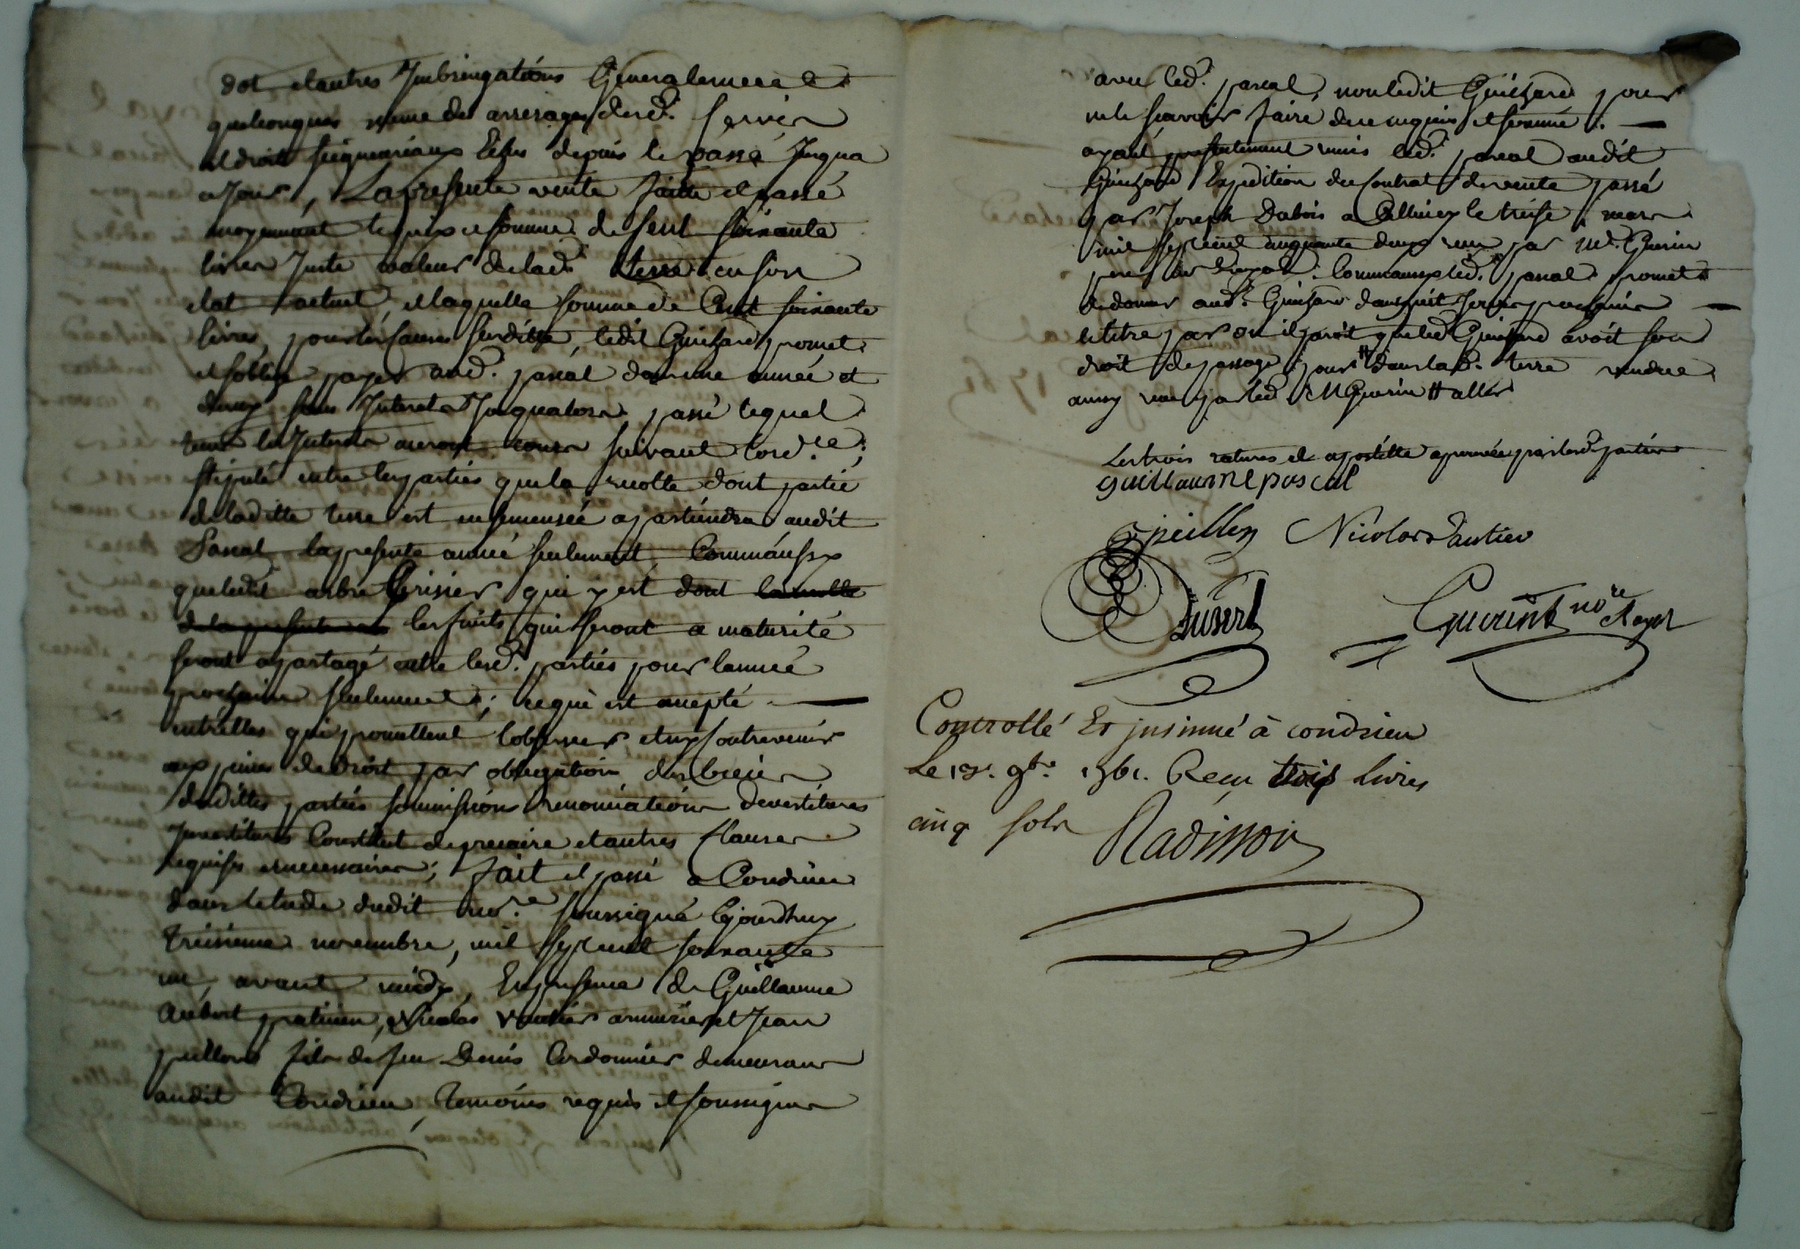 dot et autres Imbringations Generalement
quelconques meme des arrerages desd. servis
et droits seigneuriaux Echus depuis le passé Jusqua
ce Jour, La presente vente faitte et passé
moyennant le prix et somme de Cent soixante
livres Juste valeur de lad. terre en son
etat actuel, et laquelle somme de Cent soixante
livres, pour les causes susdittes, ledit Guichard promet
et soblige payer aud. pascal dans une année et
demy sans Interets Jusqualors passé lequel
tems les Interets auront cours suivant lord.ce;
stipulé entre les parties que la recolte dont partie
de laditte terre est ensemensée apartiendra audit
Pascal la presente année seulement, Comme aussy
que ledit arbre Cerisier qui y est dont la recolte
de la presente les fruits qui seront a maturité
seront apartagé entre lesd. parties pour lannée
prochaine seulement; ce qui est accepté
entrelles qui promettent lobserver et ny contrevenir
aux peines de droit par obligation des biens
desdittes parties soumissions renonciations devestitures
Investitures Constitut de precaire et autres Clauses
requises et necessaires; fait et passé a Condrieu
dans letude dudit no.re soussigné Cejourdhuy
treisieme novembre, mil sept cent soixante
un, avant midy, En presence de Guillaume
Aubert praticien, Nicolas Vautier armurier et Jean
peillon fils de feu Denis Cordonnier demeurans
audit Condrieu, temoins requis et soussignés
avec led. pascal, non ledit Guichard pour
ne le scavoir faire de ce requis et sommé.
ayant presentement remis led. pascal audit
Guichard Expedition du Contrat de vente passé
par Joseph Dubois a Cellieu le treise mars
mil sept cent cinquante deux reçu par Me. Guerin
Comme aussy led. pascal promet
de donner aud. Guichard dans huit jours prochains
le titre par ou il paroit que led Guichard avoit son
droit de passage pour # dans lad. terre vendue
aussy reçu par led Me Guerin # aller
Les trois ratures et apostille aprouvées par lesd. parties
guillaume pascal
peillon Nicolas Vautier
Aubert
Guerin no.re Royal
Controllé Et insinué à condrieu
Le 18. 9bre. 1761. Recu trois livres
cinq sols Radisson